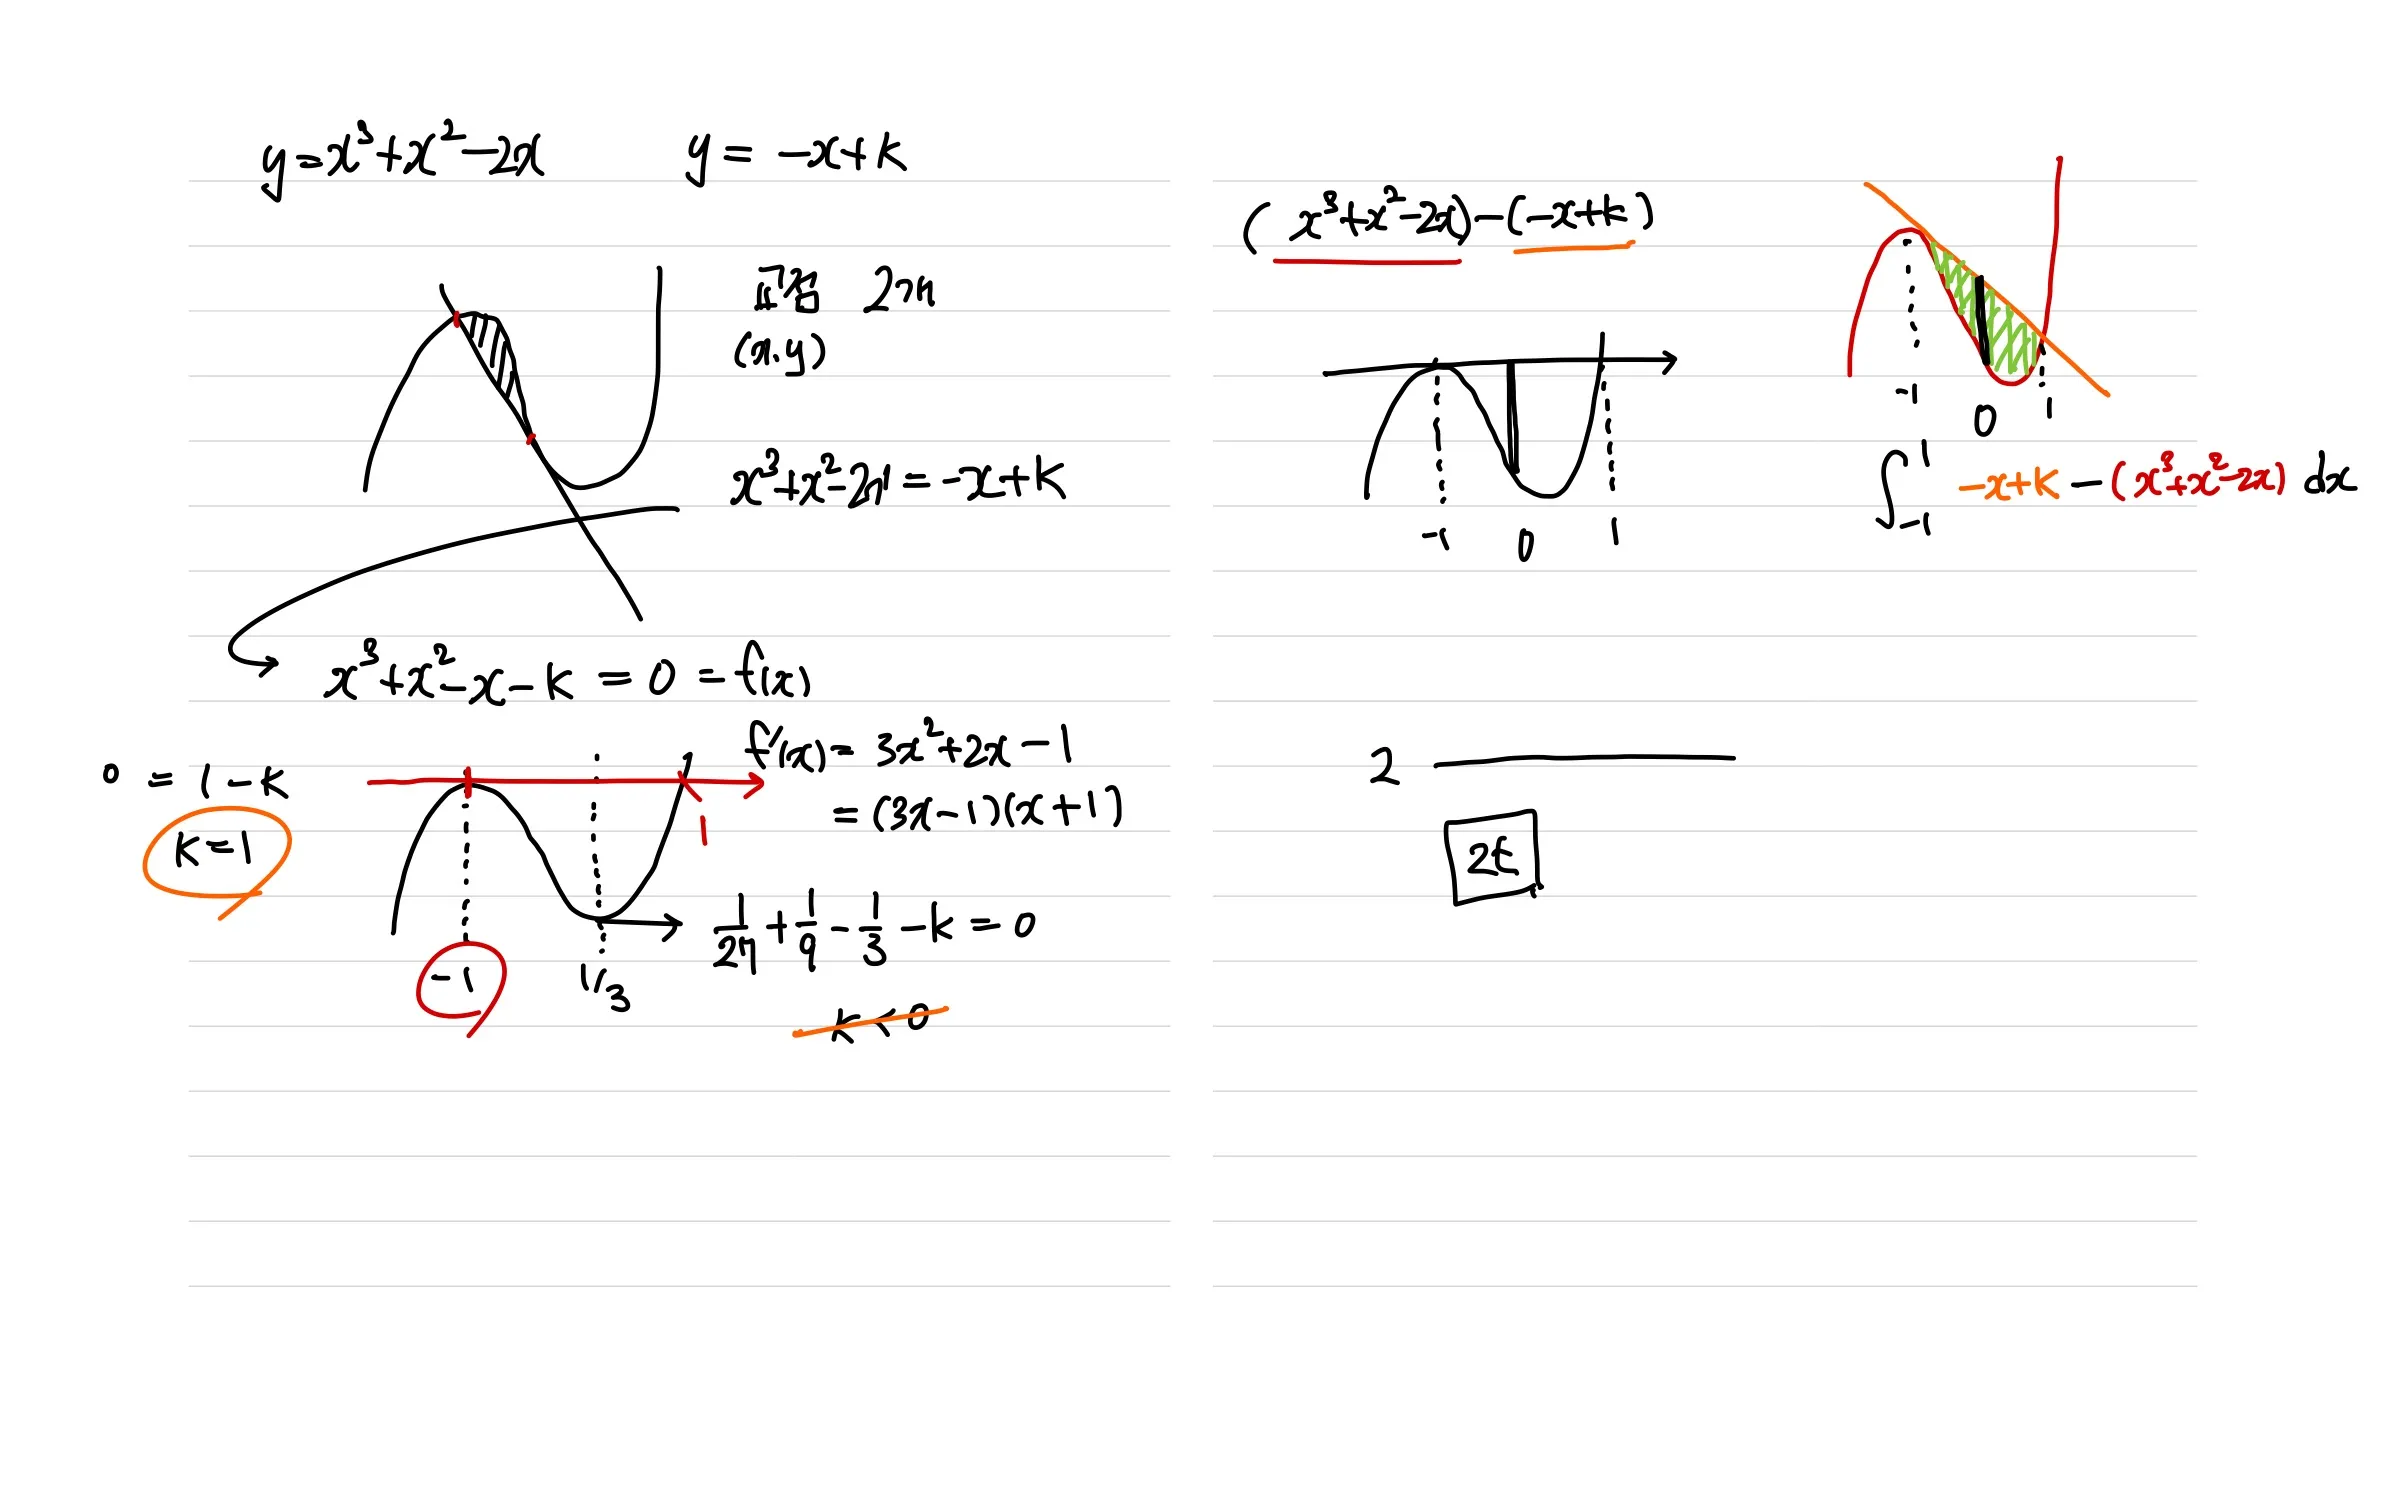 y=x³+x²-2x
y= -x+k
교점 2개
(x,y)
x³+x²-2x=-x+k
x³+x²-x-k=0=f(x)
f'(x)=3x²+2x-1
=(3x-1)(x+1)
0=1-k
k=1
1
-1
1/3
1/27+1/9-1/3-k=0
k<0
(x³+x²-2x)-(-x+k)
-1
0
1
-1
0
1
∫₋₁¹ -x+k-(x³+x²-2x) dx
2